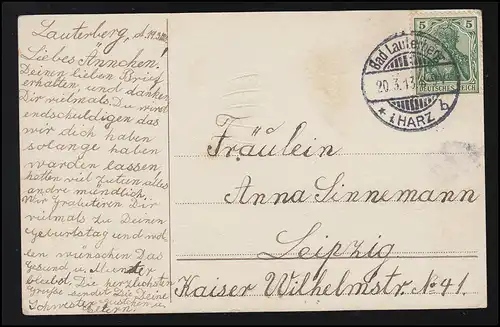 Lauterberg, d.
Liebes Ännchen.
Deinen lieben Brief
erhalten, und danken
Dir vielmals. Du wirst
endschuldigen das
wir dich haben
solange haben
warden lassen
hatten viel zutun alles
andre mündlich.
Wir Gratuliren Dir
vielmals zu Deinen
Geburtstag und wol-
len wünschen Das
Gesund u. Munter
bleibst. Die herzlichsten
Grüße sendet Die Deine
Schwester u.
Eltern.
Fräulein
Anna Sinnemann
Leipzig
Kaiser Wilhelmstr. No 41.
Bad Lauterberg
20.3.13
* i. HARZ b
5 5
DEUTSCHES REICH